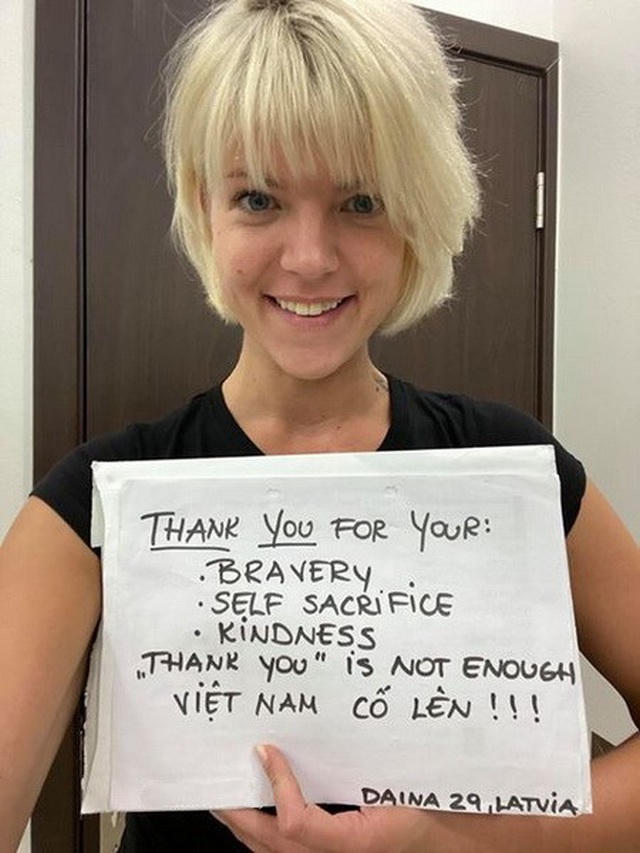 THANK YOU FOR YOUR:
· BRAVERY
· SELF SACRIFICE
· KINDNESS
„THANK YOU" iS NOT ENOUGH
VIỆT NAM CỐ LÊN !!!
DAINA 29, LATViA